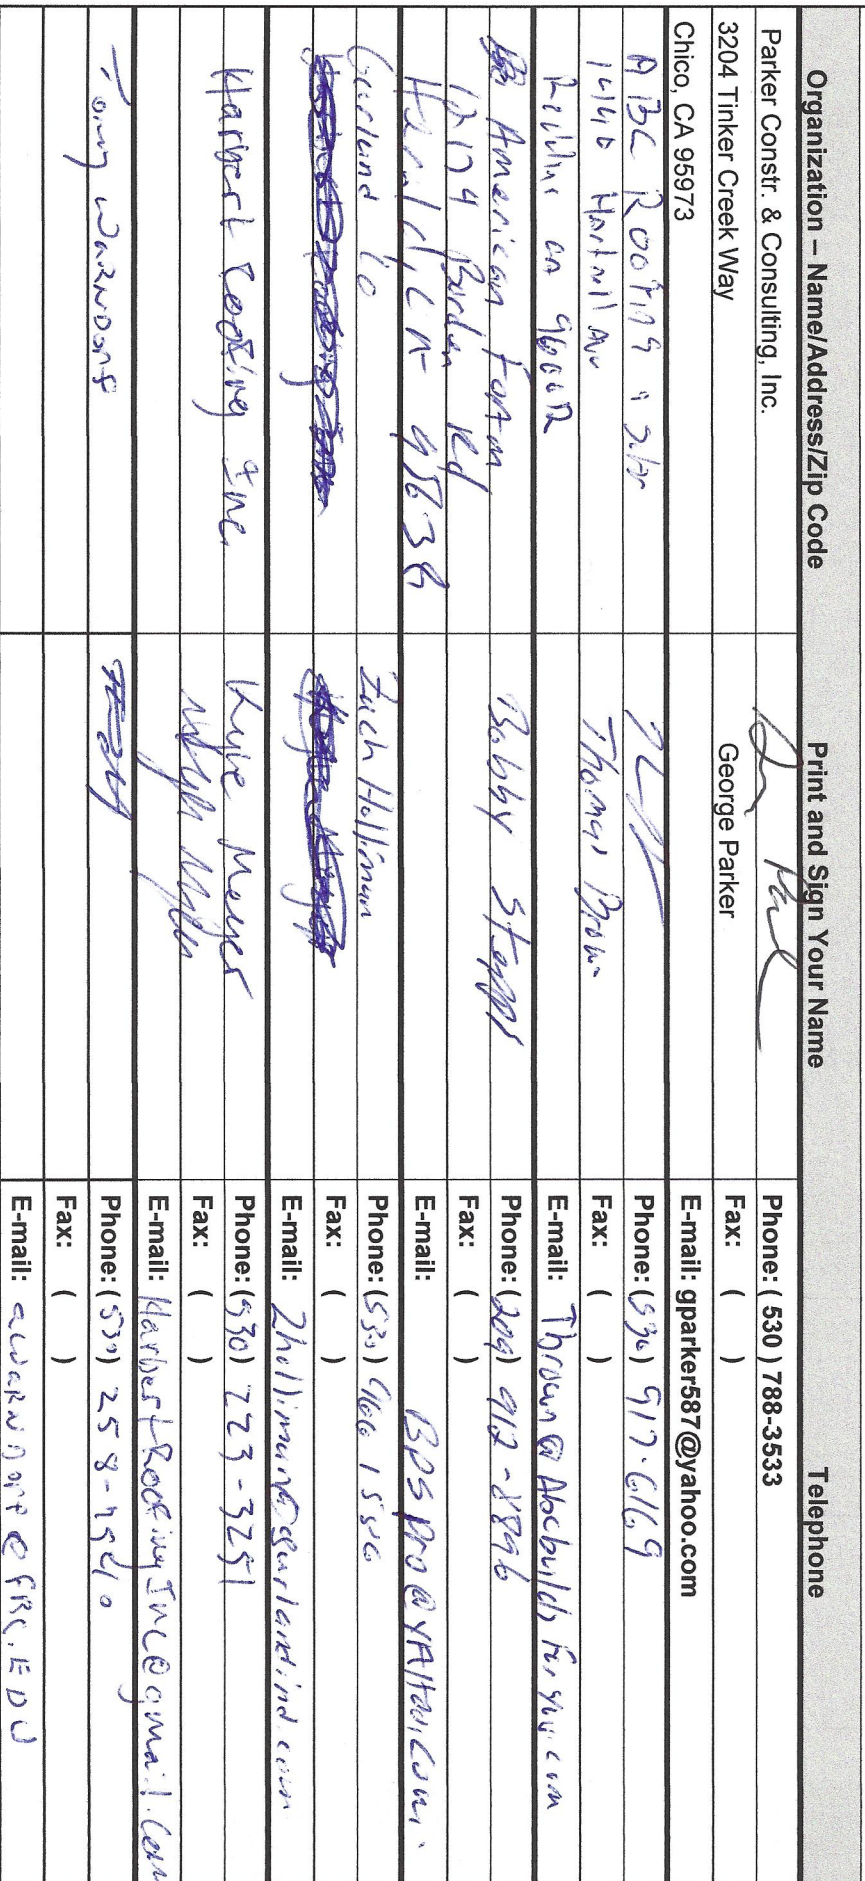 Organization – Name/Address/Zip Code Print and Sign Your Name Telephone
Parker Constr. & Consulting, Inc. Phone: ( 530 ) 788-3533
3204 Tinker Creek Way George Parker Fax: ( )
Chico, CA 95973 E-mail: gparker587@yahoo.com
ABC Roofing & Solar Phone: (530) 917-6169
1440 Hartnell Av Thomas Brown Fax: ( )
Redding ca 96002 E-mail: Tbrown@Abcbuildsforyou.com
American Foam Bobby Stepps Phone: (209) 912-8896
12174 Borden Rd Fax: ( )
Herald, CA 95638 E-mail: BPSPro@YAHOO.COM
Garland Co Zach Holliman Phone: (530)
Fax: ( )
E-mail: Zholliman@garlandind.com
Harbert Roofing Inc Kyle Meyer Phone: (530) 223-3251
Fax: ( )
E-mail: HarbertRoofingInc@gmail.com
Tony WARNDORF Phone: (530) 258-
Fax: ( )
E-mail: aWARNDORF@FRC.EDU